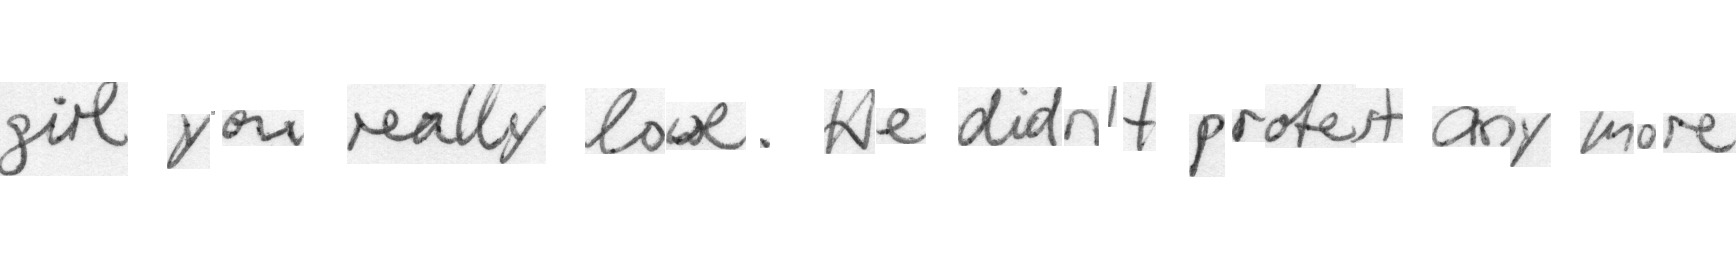 girl you really love. He didn't protest any more